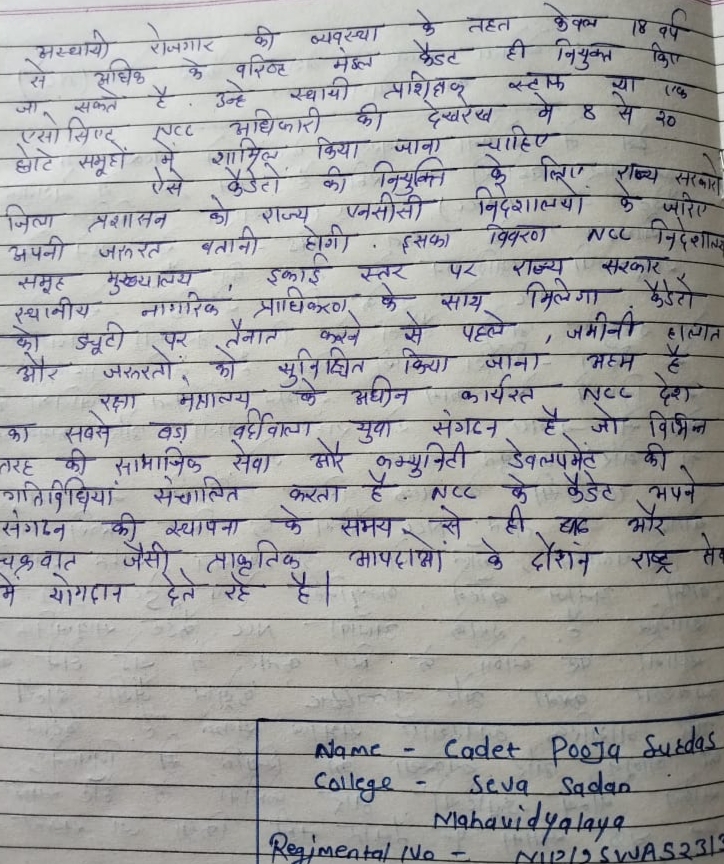 अस्थायी रोजगार की व्यवस्था के तहत केवल 18 वर्ष
से अधिक के वरिष्ठ मंडल कैडेट ही नियुक्त किए
जा सकते है. उन्हे स्थायी प्रशिक्षक स्टाफ या एक
एसोसिएट NCC अधिकारी की देखरेख मे 8 से 20
छोटे समूहों में शामिल किया जाना चाहिए
ऐसे कैडेटो की नियुक्ति के लिए राज्य सरकारो
जिला प्रशासन को राज्य एनसीसी निदेशालयों के जरिए
अपनी जरूरत बतानी होगी. इसका विवरण NCC निदेशालय
समूह मुख्यालय, इकाई स्तर पर राज्य सरकार,
स्थानीय नागरिक प्राधिकरण के साथ मिलेगा. कैडेटो
को ड्यूटी पर तैनात करने से पहले, जमीनी हालात
और जरूरतों को सुनिश्चित किया जाना अहम है
रक्षा मंत्रालय के अधीन कार्यरत NCC देश
का सबसे बडा वर्दीवाला युवा संगठन है जो विभिन्न
तरह की सामाजिक सेवा और कम्युनिटी डेवलपमेंट की
गतिविधियां संचालित करता है. NCC के कैडेट अपने
संगठन की स्थापना के समय से ही बाढ और
चक्रवात जैसी प्राकृतिक आपदाओ के दौरान राष्ट्र सेवा
में योगदान देते रहे है|
Name - Cadet Pooja Surdas
College - Seva Sadan
Mahavidyalaya
Regimental No -